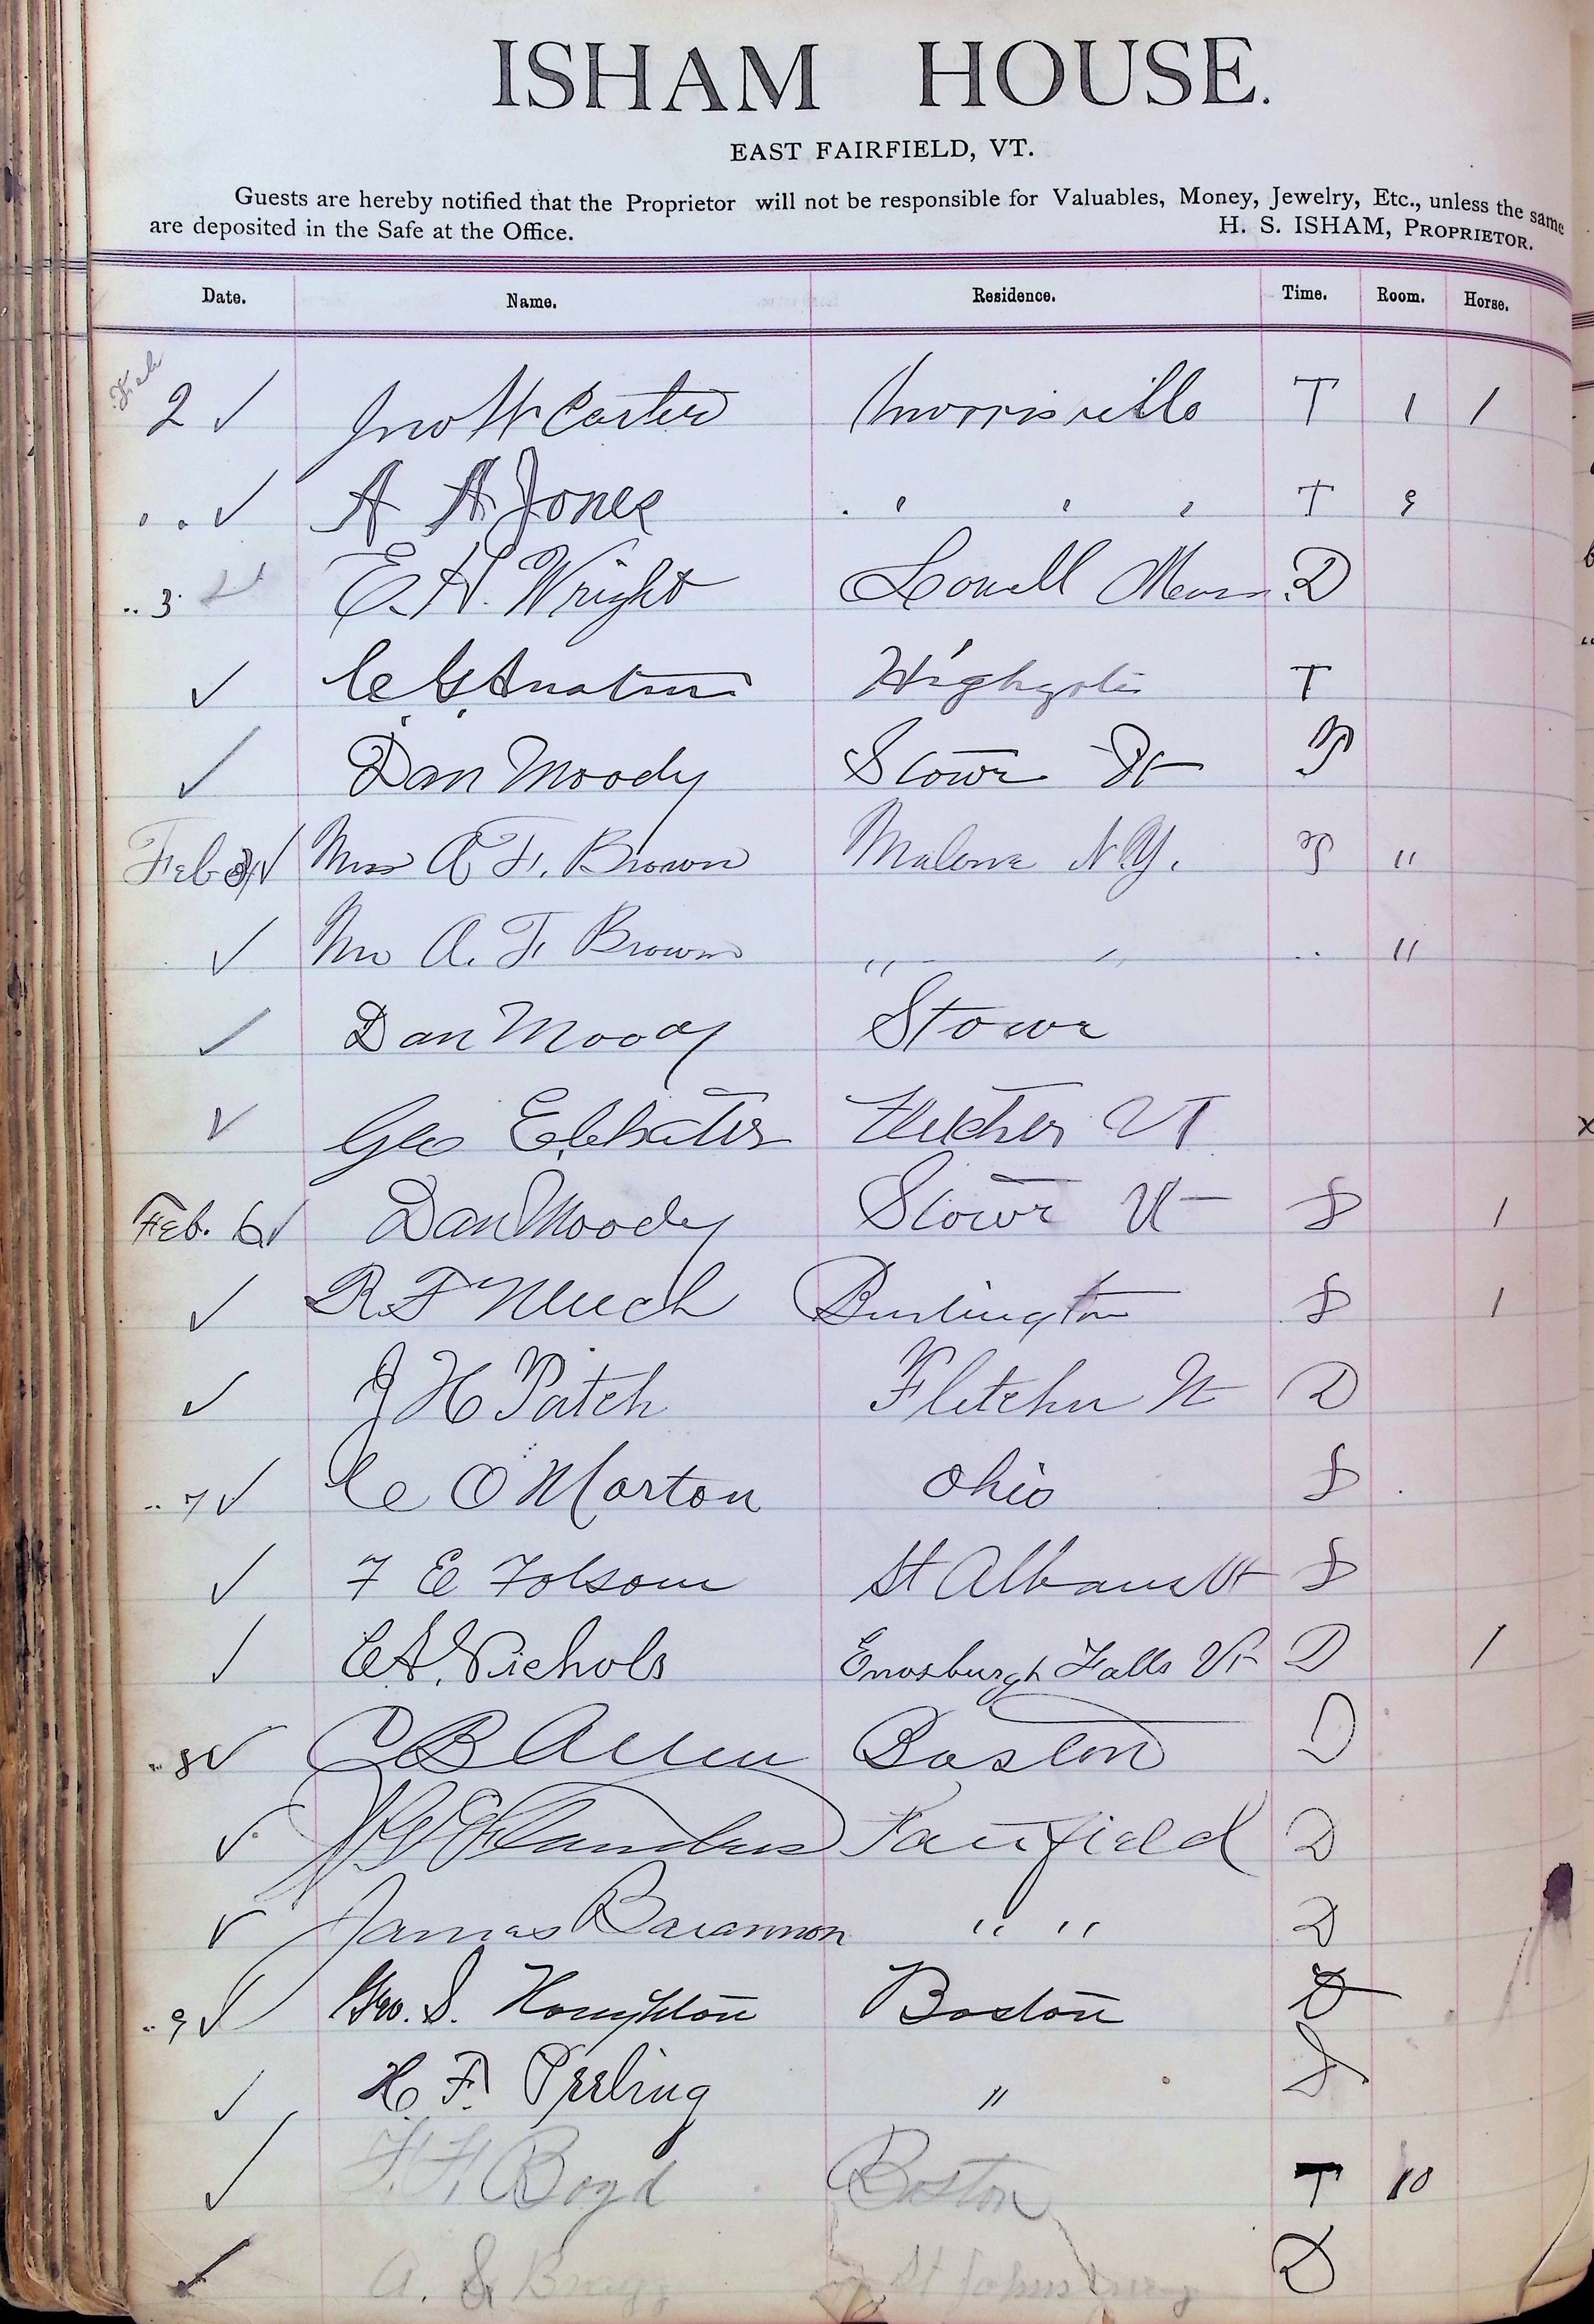 ISHAM HOUSE.
EAST FAIRFIELD, VT.
Guests are hereby notified that the Proprietor will not be responsible for Valuables, Money, Jewelry, Etc., unless the same
are deposited in the Safe at the Office. H. S. ISHAM, PROPRIETOR.
Date. Name. Residence. Time. Room. Horse.
Feb
2 ✓ Jno W Carter Morrisville T 1 1
" ✓ A A Jones " " " T 9
" 3 E. H. Wright Lowell Mass. D
✓ Highgate T
✓ Dan Moody Stowe Vt
Feb ✓ A. F. Brown Malone N.Y. "
✓ A. F. Brown " " " "
✓ Dan Moody Stowe
✓ Geo Fletcher VT
Feb. 6 ✓ Dan Moody Stowe Vt S 1
✓ R F Burlington S 1
✓ J H Patch Fletcher Vt D
" 7 ✓ C O Morton Ohio S
✓ F E Folsom St Albans Vt S
✓ C A. Nichols Enosburgh Falls Vt D 1
" 8 ✓ C B Allen Boston D
✓ Flanders Fairfield D
✓ James " " D
" 9 ✓ Geo. S. Houghton Boston
✓ H. F. "
✓ F. F. Boyd Boston T 10
✓ A. St Johnsbury D